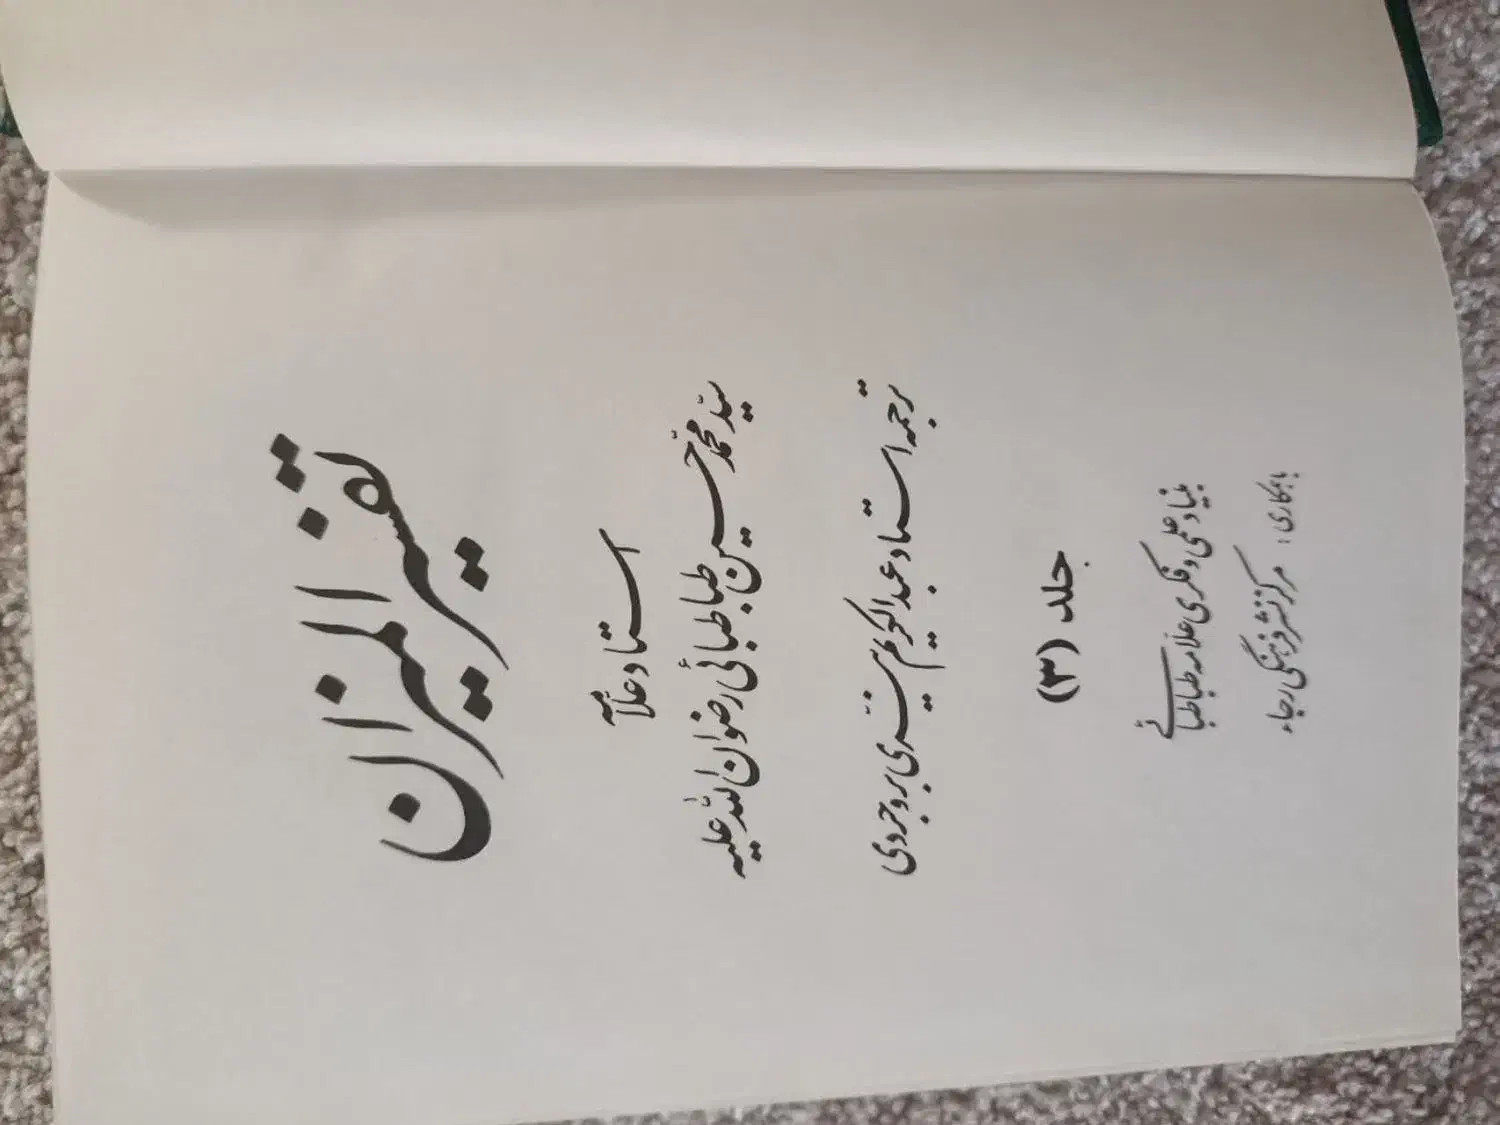 تفسیر المیزان
استاد علامه
سید محمد حسین طباطبائی رضوان الله علیه
ترجمه استاد عبدالکریم نیری بروجردی
جلد (۳)
بنیاد علمی و فکری علامه طباطبائی
با همکاری: مرکز نشر فرهنگی رجاء